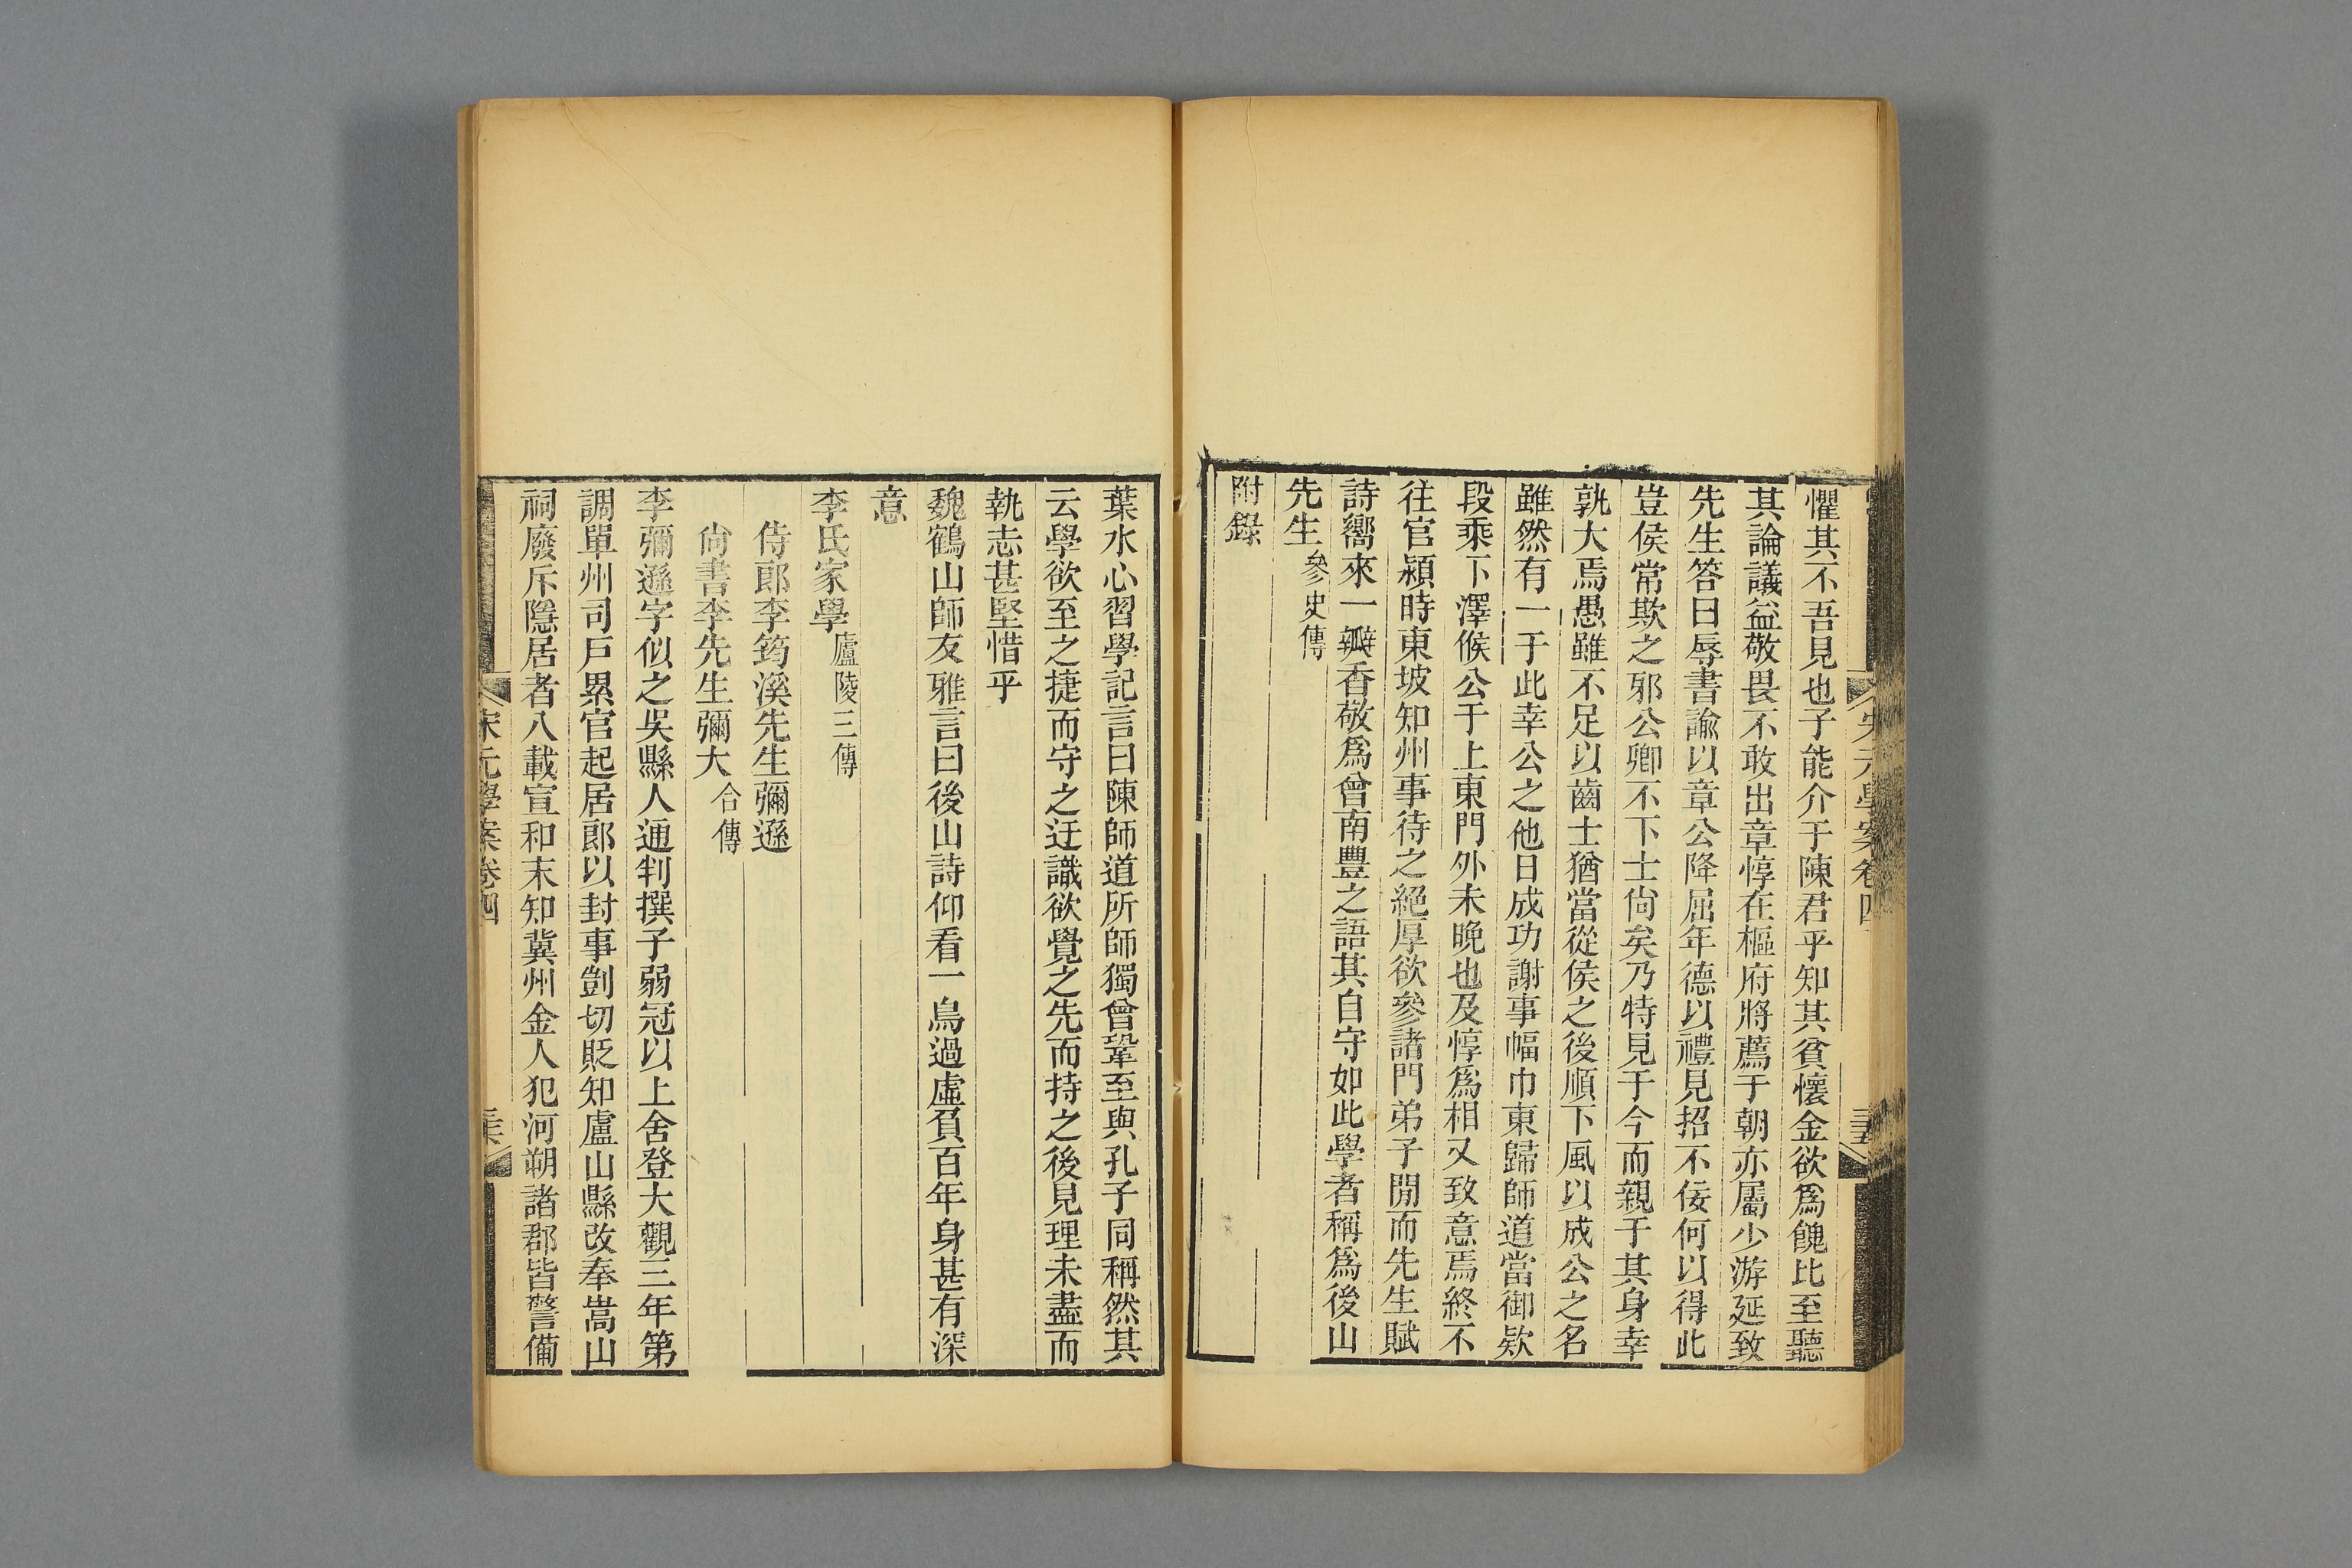 宋元學案卷四
懼其不吾見也子能介于陳君乎知其貧懷金欲爲餽比至聽
其論議益敬畏不敢出章惇在樞府將薦于朝亦屬少游延致
先生答曰辱書諭以章公降屈年德以禮見招不佞何以得此
豈侯常欺之邪公卿不下士尙矣乃特見于今而親于其身幸
孰大焉愚雖不足以齒士猶當從侯之後順下風以成公之名
雖然有一于此幸公之他日成功謝事幅巾東歸師道當御欵
段乘下澤候公于上東門外未晚也及惇爲相又致意焉終不
往官潁時東坡知州事待之絕厚欲參諸門弟子閒而先生賦
詩嚮來一瓣香敬爲曾南豐之語其自守如此學者稱爲後山
先生參史傳
附錄
葉水心習學記言曰陳師道所師獨曾鞏至與孔子同稱然其
云學欲至之捷而守之迂識欲覺之先而持之後見理未盡而
執志甚堅惜乎
魏鶴山師友雅言曰後山詩仰看一鳥過虛負百年身甚有深
意
李氏家學廬陵三傳
侍郎李筠溪先生彌遜
尙書李先生彌大合傳
李彌遜字似之吳縣人通判撰子弱冠以上舍登大觀三年第
調單州司戶累官起居郎以封事剴切貶知盧山縣改奉嵩山
祠廢斥隱居者八載宣和末知冀州金人犯河朔諸郡皆警備
宋元學案卷四